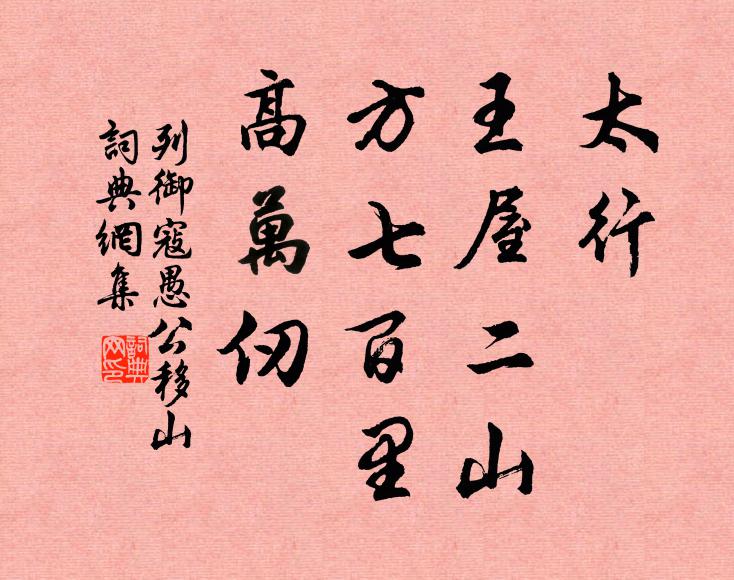 太行
王屋二山
方七百里
高萬仞
列御寇愚公移山
詞典網集
詞典网印